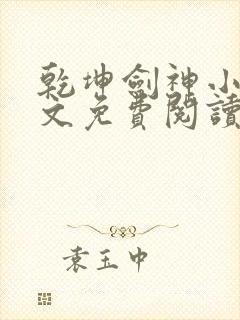 乾坤劍神小
文免費閱讀
袁玉中